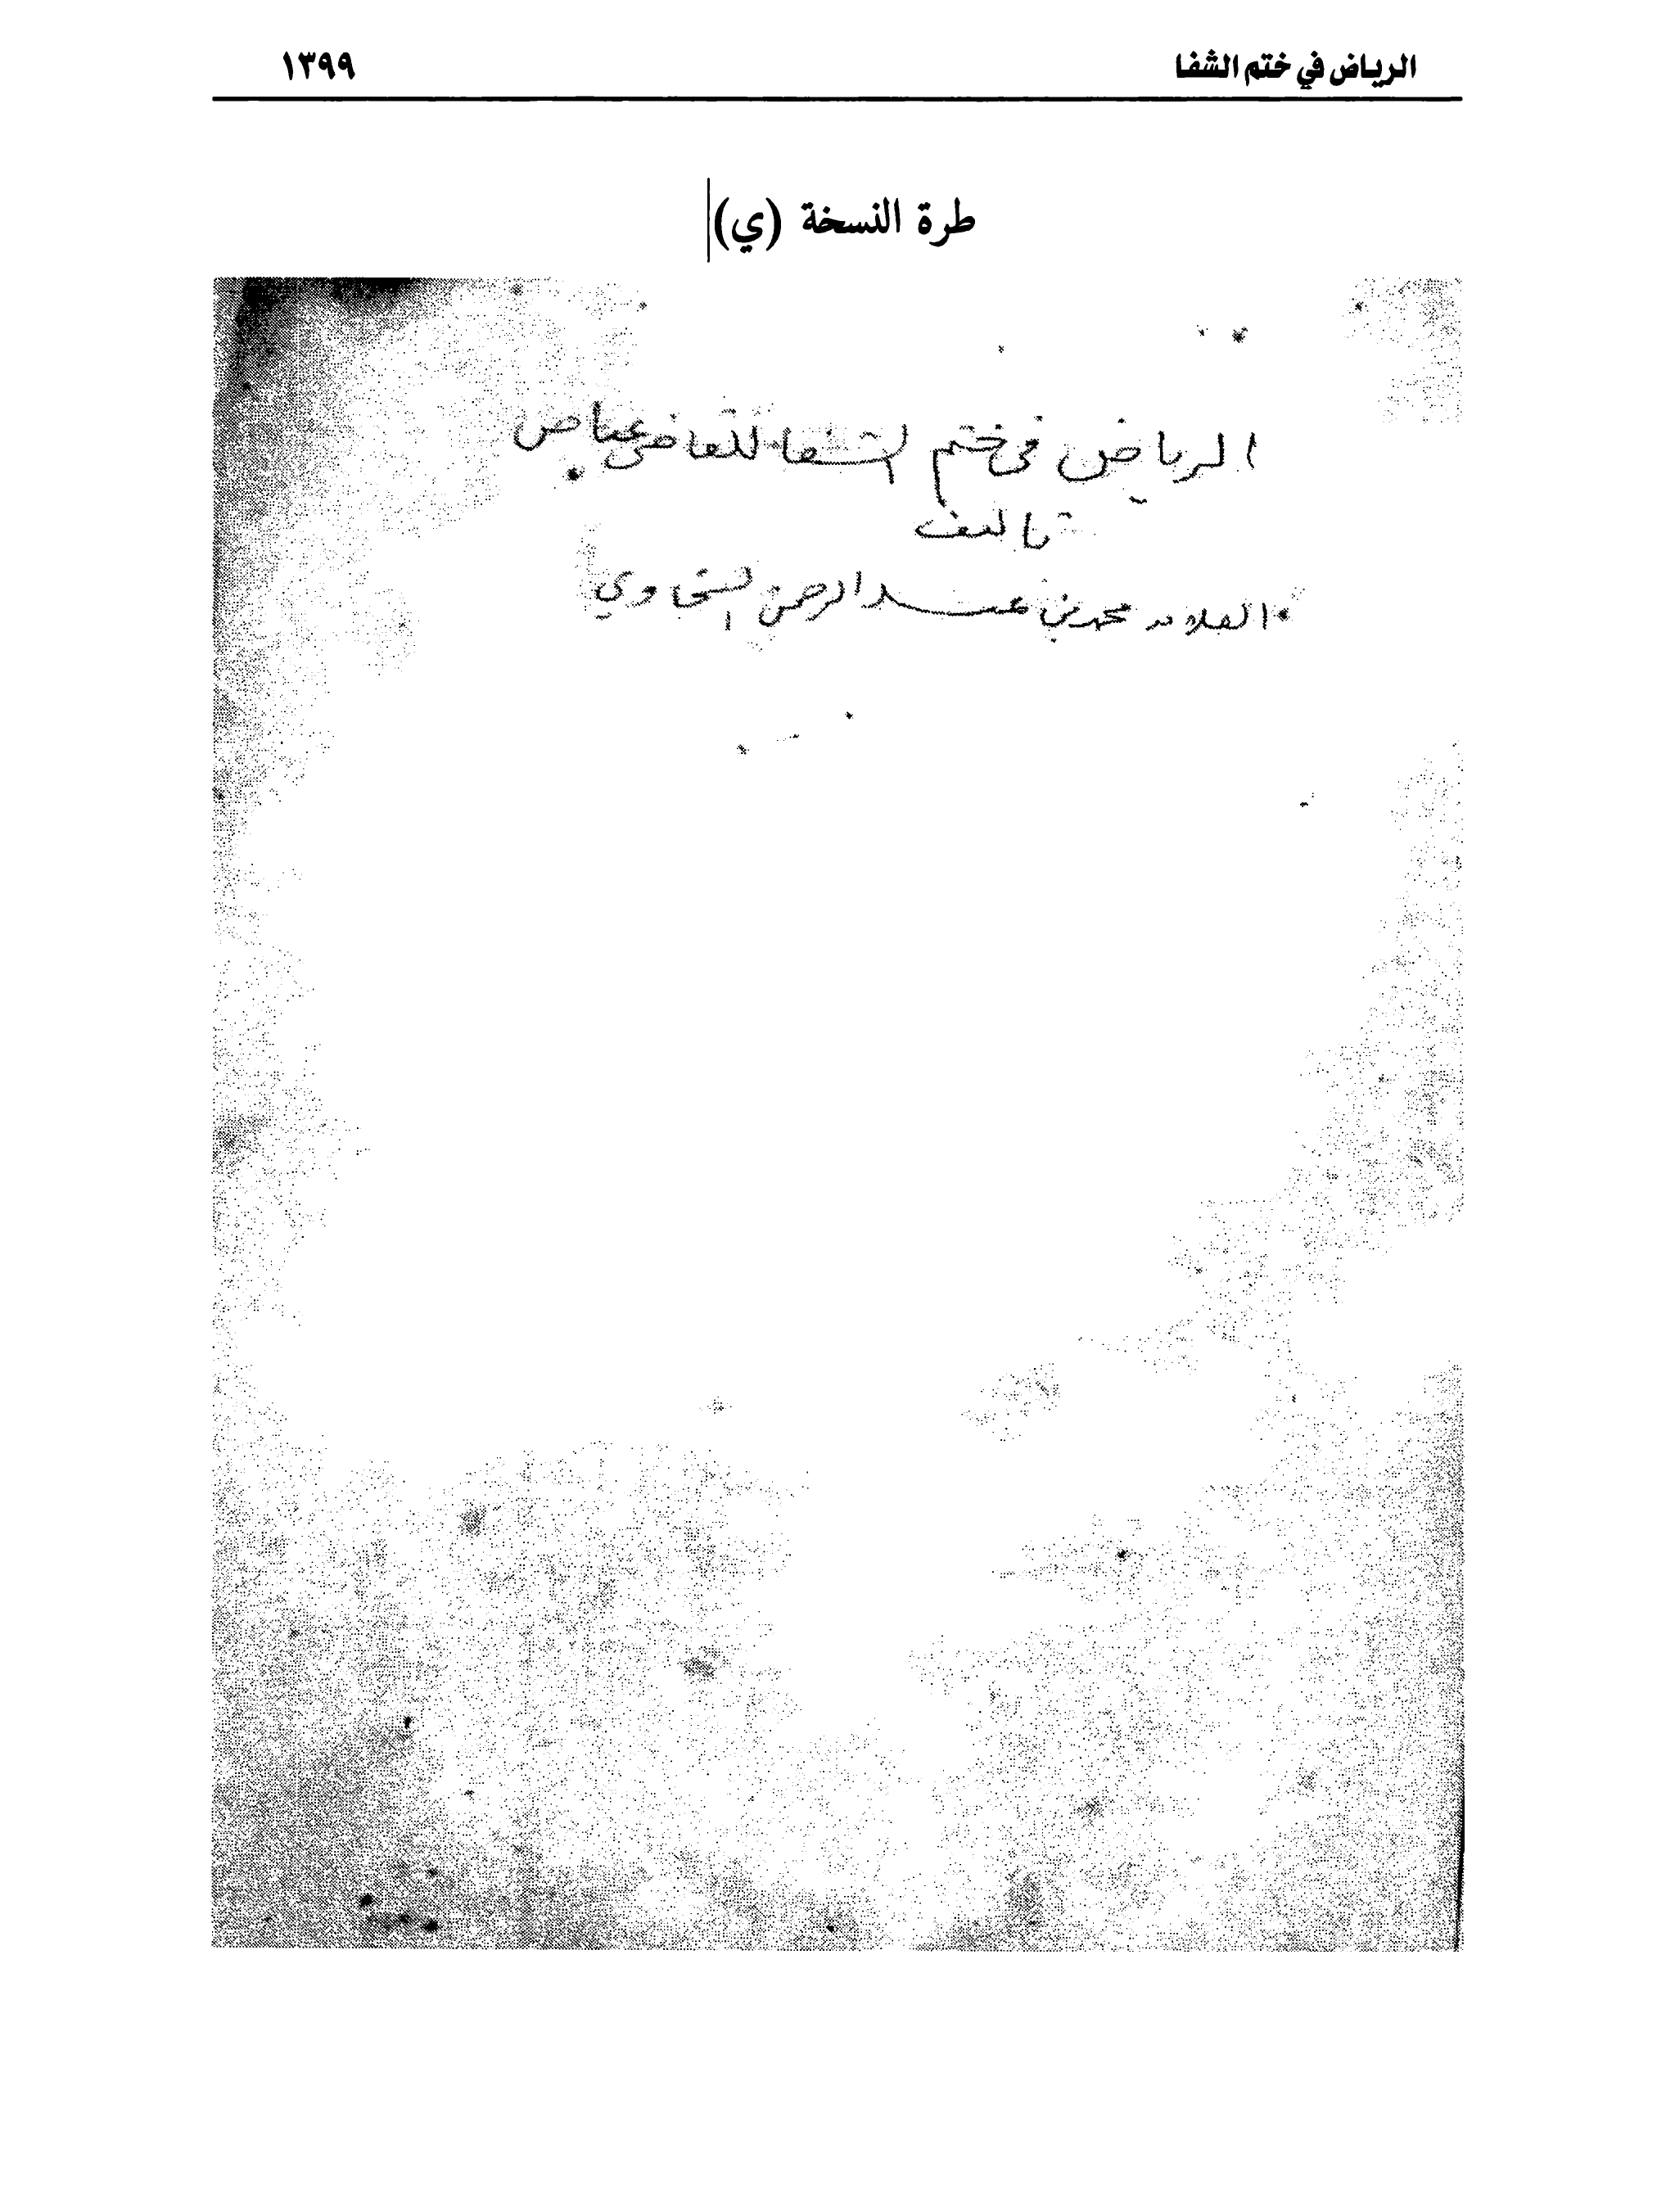 الرياض في ختم الشفا ١٣٩٩
طرة النسخة (ي)
الرياض في ختم الشفا للقاضي عياض
تاليف
العلامه محمد بن عبد الرحمن السخاوي